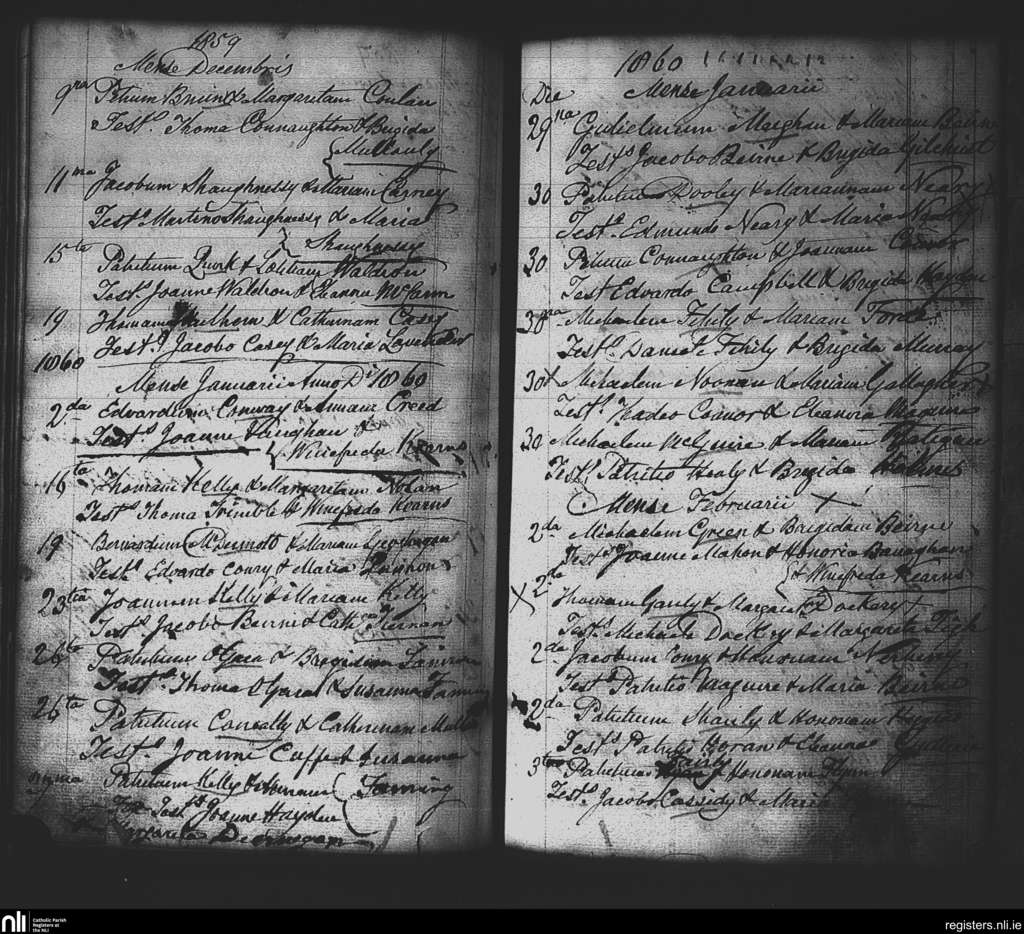 1859
Mense Decembris
9na Petrum & Margaritam Conlan
Tests. Thoma Connaughton & Brigida
Mullauly
11ma Jacobum Shaughnessy & Mariam Carney
Tests. Martino Shaughnessy & Maria
Shaughnessy
15ta Patritium Quirk & Waldron
Tests. Joanne Waldron & McCann
19 Thomam Mulhern & Catherinam Casey
Tests. Jacobo Casey & Maria Lavender
1860
Mense Januarii Anno Di 1860
2da Edvardum Conway & Annam Creed
Tests. Joanne &
Winefreda Kearns
16ta Thomam Kelly & Margaritam Nolan
Tests. Thoma Trimble & Winefreda Kearns
19 Bernardum McDermott & Mariam Geoghegan
Tests. Edvardo Conry & Maria
23tia Joannem Kelly & Mariam Kelly
Tests. Jacobo Beirne & Kiernan
26ta Patritium OGara & Brigidam
Tests. Thoma OGara & Susanna
26ta Patritium Connally & Catherinam
Tests. Joanne Cuffe & Susanna
Fanning
Patritium Kelly & Annam
Tests. Joanne Hayden
Margarita
1860
Die Mense Januarii
29na Gulielmum Meighan & Mariam Beirn
Tests Jacobo Beirne & Brigida Gilchrist
30 Patritium Dooley & Neary
Tests. Edmundo Neary & Maria Neary
30 Petrum Connaughton & Joannam Connor
Test Edvardo Campbell & Brigida Hayden
30 Michaelem Fehily & Mariam Forde
Tests. Daniele Fehily & Brigida Murray
30 X Michaelem Noonan & Mariam Gallagher X
Tests. Thadeo Connor & Eleanora Maguire
30 Michaelem McGuire & Mariam
Tests. Patritio Healy & Brigida
Mense Februarii X
2da Michaelem Green & Brigidam Beirne
Tests Joanne Mahon & Honoria Banaghan
& Winefreda Kearns
X 2da Thomam Gauly & Dockery X
Tests. Michaele Dockry & Margareta
2da Jacobum Conry & Honoriam
Tests Patritio Maguire & Maria Beirne
2da Patritium Shanly & Honoriam Higgins
Tests Patritio Horan &
3tia Patritium & Honoriam Flynn
Tests. Jacobo Cassidy & Maria
nli Catholic Parish
Registers at
the NLI
registers.nli.ie